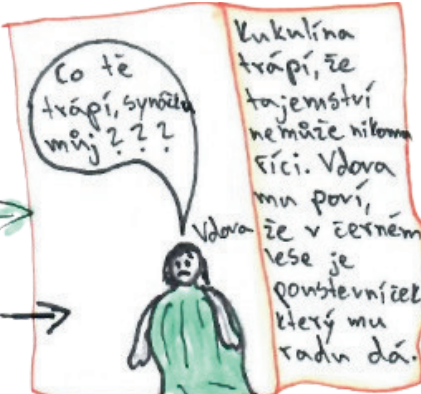 Co tě
trápí, synáčku
můj???
Vdova
Kukulína
trápí, že
tajemství
nemůže nikomu
říci. Vdova
mu poví,
že v černém
lese je
poustevníček
který mu
radu dá.